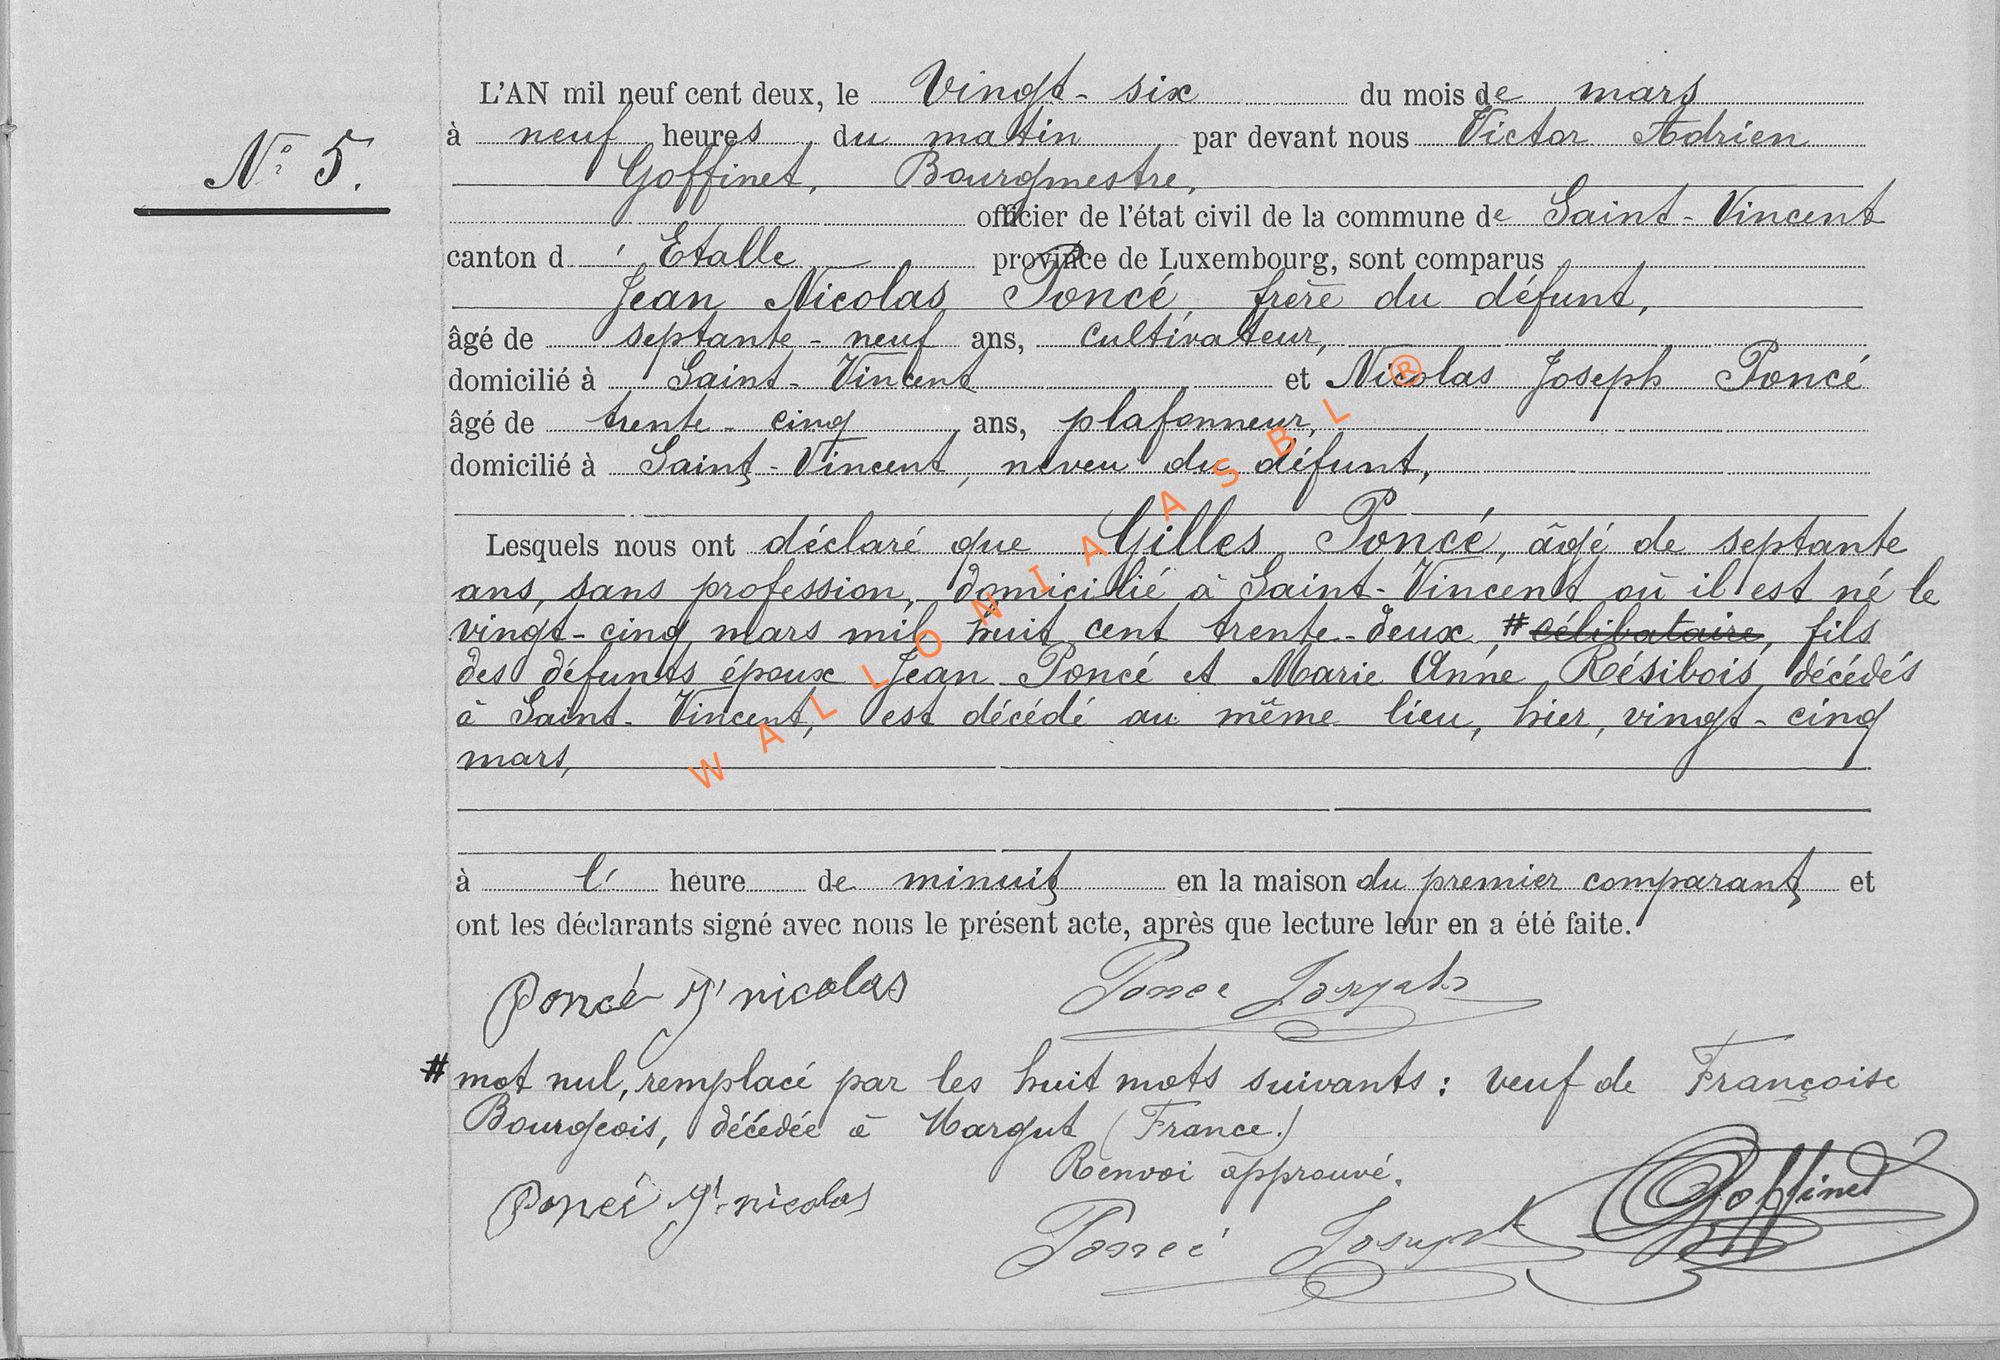 N° 5.
L'AN mil neuf cent deux, le Vingt-six du mois de mars
à neuf heures du matin par devant nous Victor Adrien
Goffinet, Bourgmestre,
officier de l'état civil de la commune de Saint-Vincent
canton d'Etalle province de Luxembourg, sont comparus
Jean Nicolas Poncé, frère du défunt,
âgé de septante-neuf ans, cultivateur,
domicilié à Saint-Vincent et Nicolas Joseph Poncé
âgé de trente-cinq ans, plafonneur,
domicilié à Saint-Vincent, neveu du défunt,
Lesquels nous ont déclaré que Gilles Poncé, âgé de septante
ans, sans profession, domicilié à Saint-Vincent où il est né le
vingt-cinq mars mil huit cent trente-deux, # célibataire, fils
des défunts époux Jean Poncé et Marie Anne Résibois, décédés
à Saint-Vincent, est décédé au même lieu, hier, vingt-cinq
mars,
à l' heure de minuit en la maison du premier comparant et
ont les déclarants signé avec nous le présent acte, après que lecture leur en a été faite.
Poncé Jn nicolas Poncé Joseph
# mot nul, remplacé par les huit mots suivants : veuf de Françoise
Bourgeois, décédée à Margut (France.)
Renvoi approuvé.
Poncé Jn nicolas Poncé Joseph Goffinet
WALLONIA ASBL ®